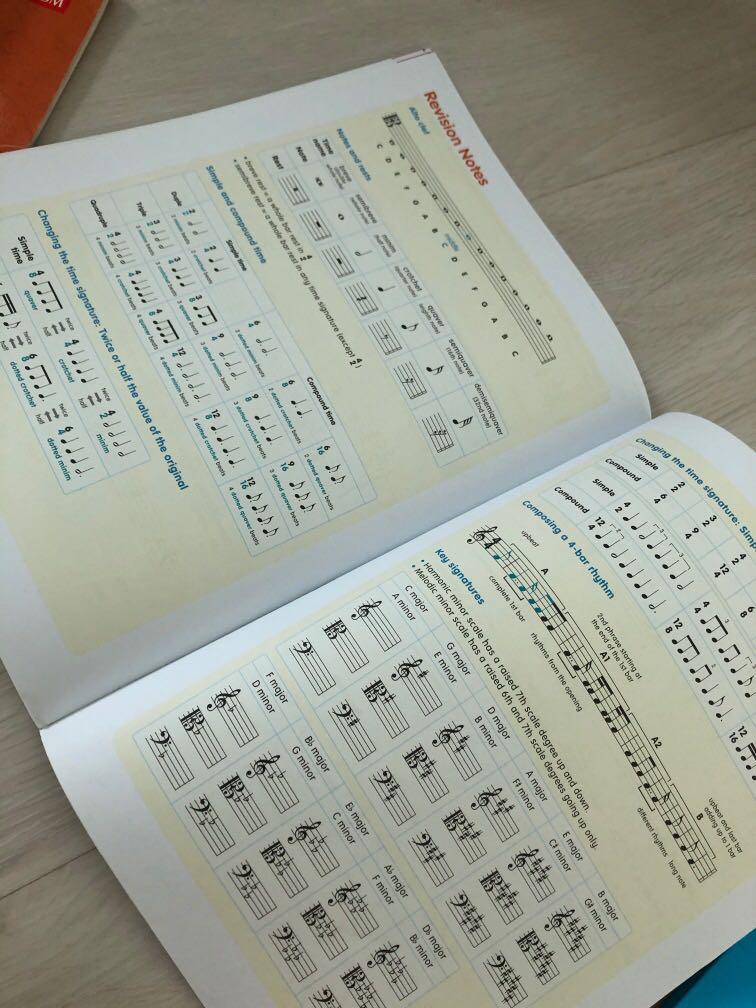 BM
Revision Notes
Alto clef
C D E F G A B C D E F G A B C
middle
Notes and rests
Time names
breve
semibreve
minim
(half note)
crotchet
(quarter note)
quaver
(eighth note)
semiquaver
(16th note)
demisemiquaver
(32nd note)
Note
Rest
• breve rest = a whole bar rest in 4 2
• semibreve rest = a whole bar rest in any time signature (except 4 2)
Simple and compound time
Simple time
Compound time
Duple
2 2
2 minim beats
2 4
2 crotchet beats
6 4
2 dotted minim beats
6 8
2 dotted crotchet beats
6 16
2 dotted quaver beats
Triple
3 2
3 minim beats
3 4
3 crotchet beats
3 8
3 quaver beats
9 4
3 dotted minim beats
9 8
3 dotted crotchet beats
9 16
3 dotted quaver beats
Quadruple
4 2
4 minim beats
4 4
4 crotchet beats
4 8
4 quaver beats
12 4
4 dotted minim beats
12 8
4 dotted crotchet beats
12 16
4 dotted quaver beats
Changing the time signature: Twice or half the value of the original
Simple time
4 8
quaver
twice
half
4 4
crotchet
twice
half
4 2
minim
6 8
dotted crotchet
twice
half
6 4
dotted minim
twice
half
Changing the time signature: Simp
Simple
2 2
3 2
4 2
Compound
6 4
9 4
12 4
Simple
4 2
4 4
Compound
12 4
12 8
12 16
Composing a 4-bar rhythm
upbeat
A
complete 1st bar
rhythms from the opening
2nd phrase starting at
the end of the 1st bar
A1
A2
different rhythms
B
long note
upbeat and last bar
adding up to 1 bar
Key signatures
• Harmonic minor scale has a raised 7th scale degree up and down
• Melodic minor scale has a raised 6th and 7th scale degrees going up only
C major
A minor
G major
E minor
D major
B minor
A major
F♯ minor
E major
C♯ minor
B major
G♯ minor
F major
D minor
B♭ major
G minor
E♭ major
C minor
A♭ major
F minor
D♭ major
B♭ minor